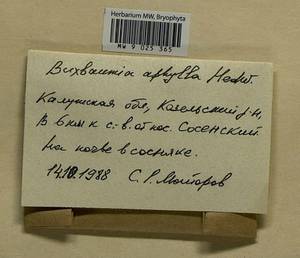 Herbarium MW, Bryophyta
MW 9 025 365
Buxbaumia aphylla Hedw.
Калужская обл., Козельский р-н,
В 6 км к с.-в. от пос. Сосенский.
На почве в сосняке.
14.10.1988 С. Р. Майоров